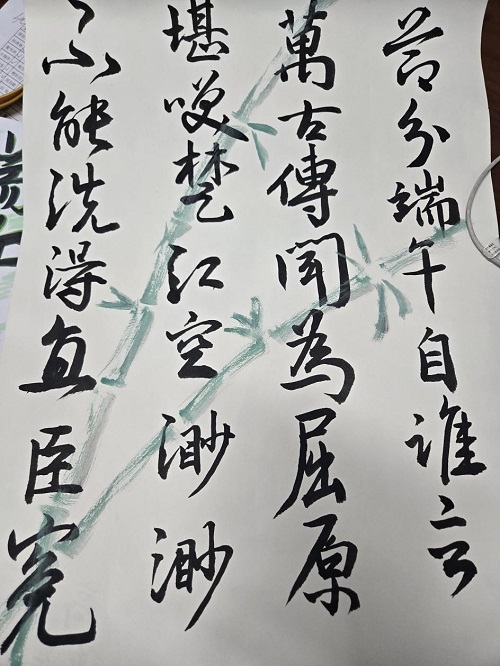 節分端午自誰言
萬古傳聞為屈原
堪咲楚江空渺渺
不能洗得直臣冤